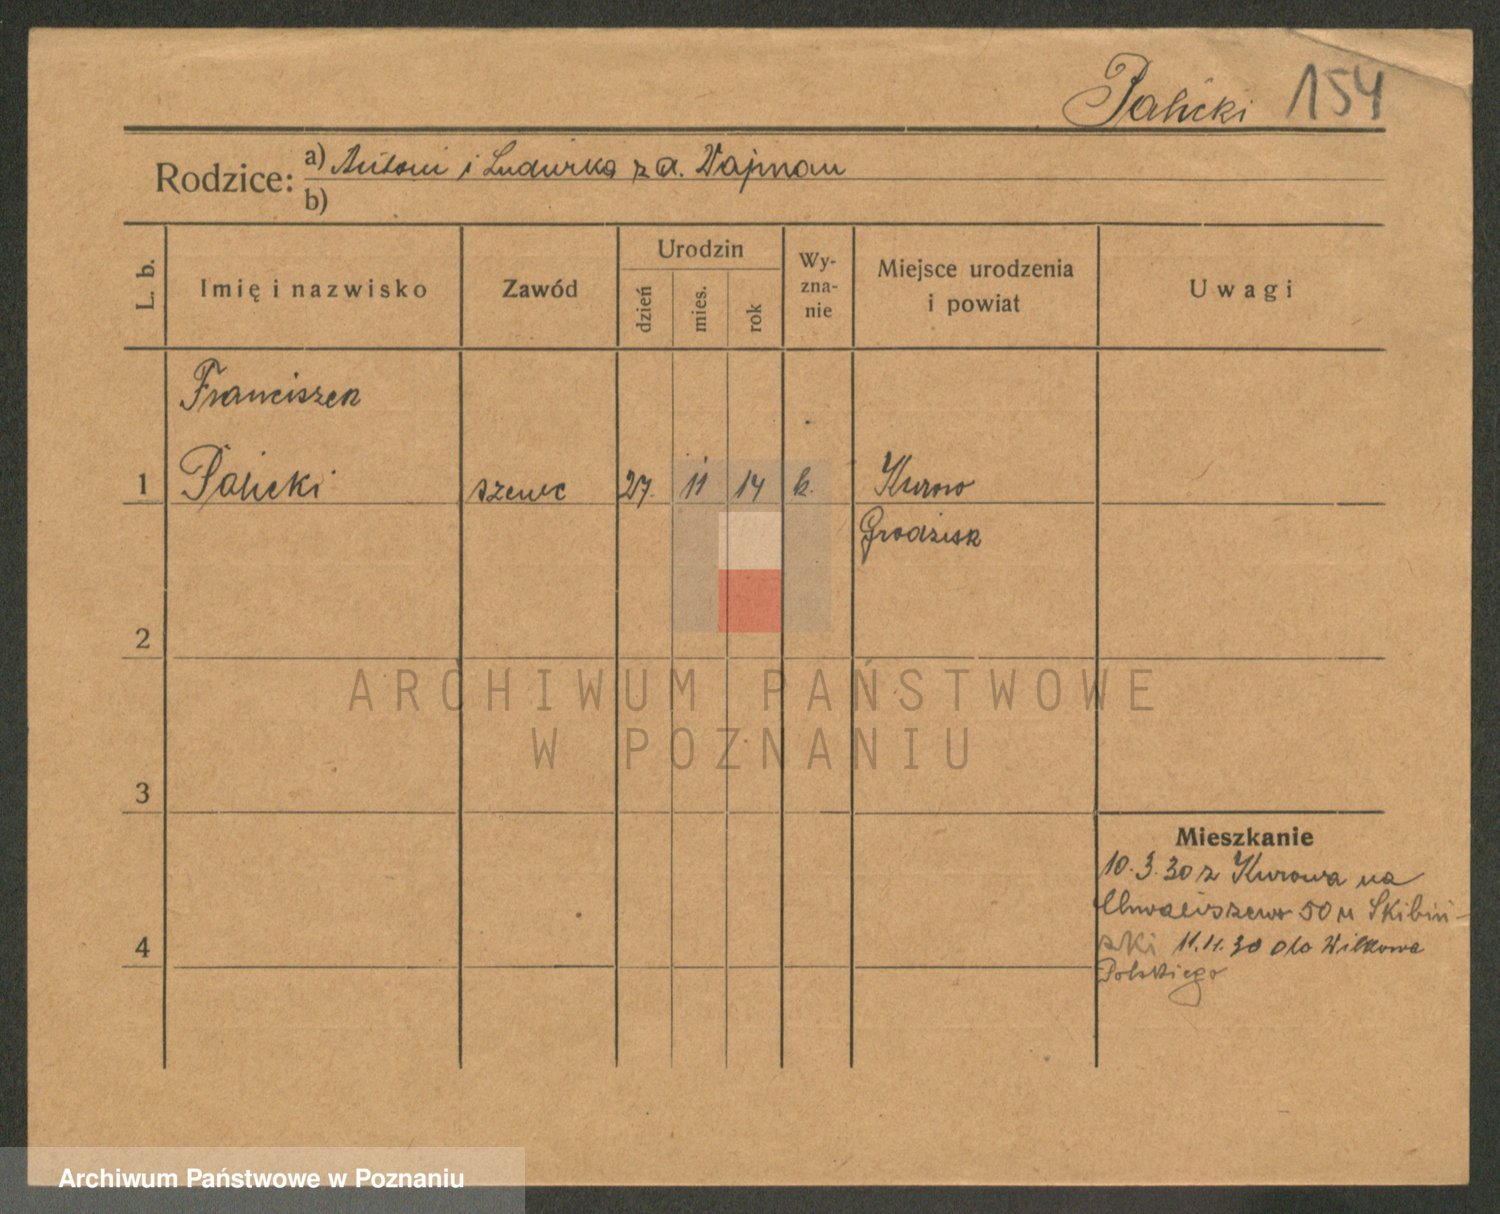 Palicki 154
Rodzice: a) Antoni i Ludwika z d. Wajman
b)
L. b.
Imię i nazwisko
Zawód
Urodzin
dzień
mies.
rok
Wy-
zna-
nie
Miejsce urodzenia
i powiat
Uwagi
Franciszek
1 Palicki szewc 27. 11 14 k. Kurowo
Grodzisk
2
ARCHIWUM PAŃSTWOWE
W POZNANIU
3
Mieszkanie
10.3.30 z Kurowa na
Chwaliszewo 50 u Skibiń-
4 ski 11.11.30 do Wilkowa
Polskiego
Archiwum Państwowe w Poznaniu